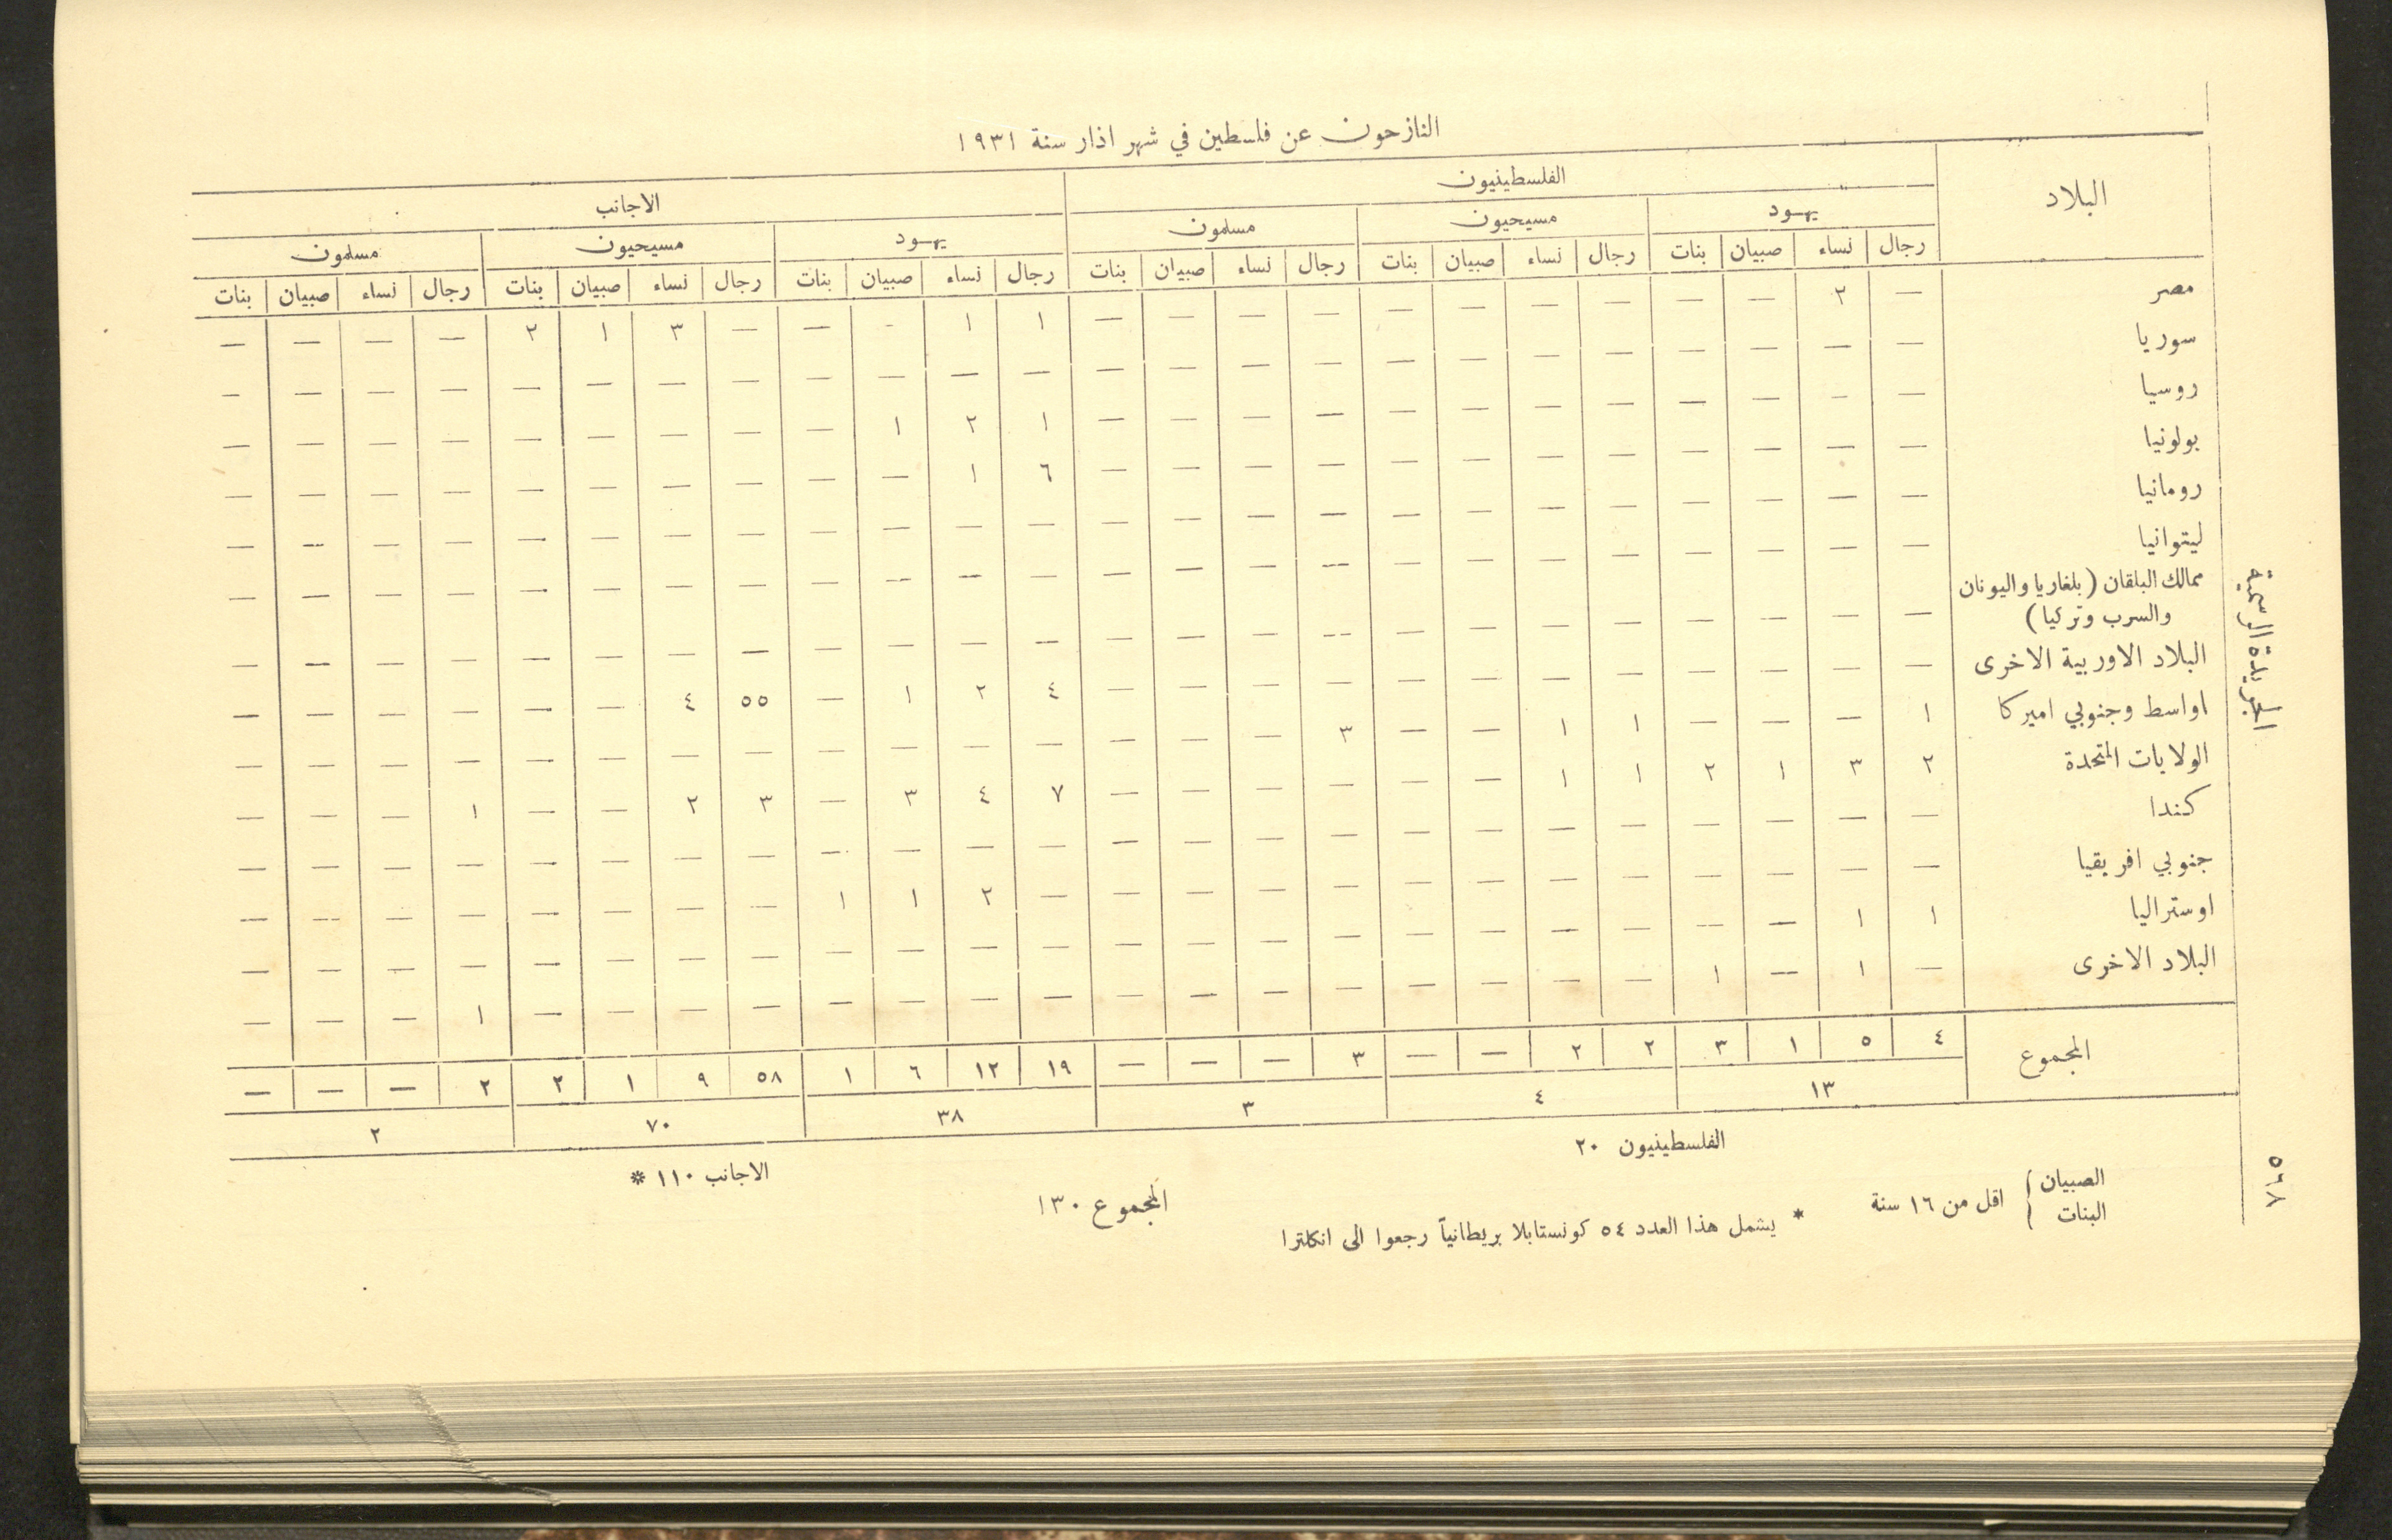 الجريدة الرسمية
٥٦٧
النازحون عن فلسطين في شهر اذار سنة ١٩٣١
البلاد | الفلسطينيون | الاجانب
يهود | مسيحيون | مسلمون | يهود | مسيحيون | مسلمون
رجال | نساء | صبيان | بنات | رجال | نساء | صبيان | بنات | رجال | نساء | صبيان | بنات | رجال | نساء | صبيان | بنات | رجال | نساء | صبيان | بنات | رجال | نساء | صبيان | بنات
مصر — ٢ — — — — — — — — — — ١ ١ — — — ٣ ١ ٢ — — — —
سوريا — — — — — — — — — — — — — — — — — — — — — — — —
روسيا — — — — — — — — — — — — ١ ٢ ١ — — — — — — — — —
بولونيا — — — — — — — — — — — — ٦ ١ — — — — — — — — — —
رومانيا — — — — — — — — — — — — — — — — — — — — — — — —
ليتوانيا — — — — — — — — — — — — — — — — — — — — — — — —
ممالك البلقان (بلغاريا واليونان
والسرب وتركيا) — — — — — — — — — — — — — — — — — — — — — — — —
البلاد الاوربية الاخرى — — — — — — — — — — — — ٤ ٢ ١ — ٥٥ ٤ — — — — — —
اواسط وجنوبي اميركا ١ — — — ١ ١ — — ٣ — — — — — — — — — — — — — — —
الولايات المتحدة ٢ ٣ ١ ٢ ١ ١ — — — — — — ٧ ٤ ٣ — ٣ ٢ — — ١ — — —
كندا — — — — — — — — — — — — — — — — — — — — — — — —
جنوبي افريقيا — — — — — — — — — — — — — ٢ ١ ١ — — — — — — — —
اوستراليا ١ ١ — — — — — — — — — — — — — — — — — — — — — —
البلاد الاخرى — ١ — ١ — — — — — — — — — — — — — — — — ١ — — —
المجموع ٤ ٥ ١ ٣ ٢ ٢ — — ٣ — — — ١٩ ١٢ ٦ ١ ٥٨ ٩ ١ ٢ ٢ — — —
١٣ ٤ ٣ ٣٨ ٧٠ ٢
الفلسطينيون ٢٠
الاجانب ١١٠ *
المجموع ١٣٠
الصبيان
البنات
اقل من ١٦ سنة
* يشمل هذا العدد ٥٤ كونستابلا بريطانياً رجعوا الى انكلترا